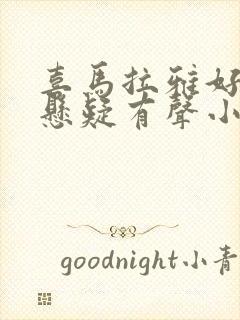 喜馬拉雅好
懸疑有聲小
goodnight小青